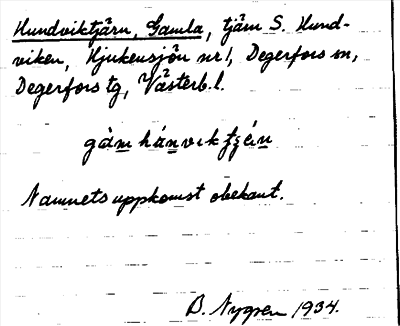 Hundviktjärn, Gamla, tjärn S. Hund-
viken, Hjukensjön nr 1, Degerfors sn,
Degerfors tg, Västerb. l.
gám hánvik tjén
Namnets uppkomst obekant.
B. Nygren 1934.